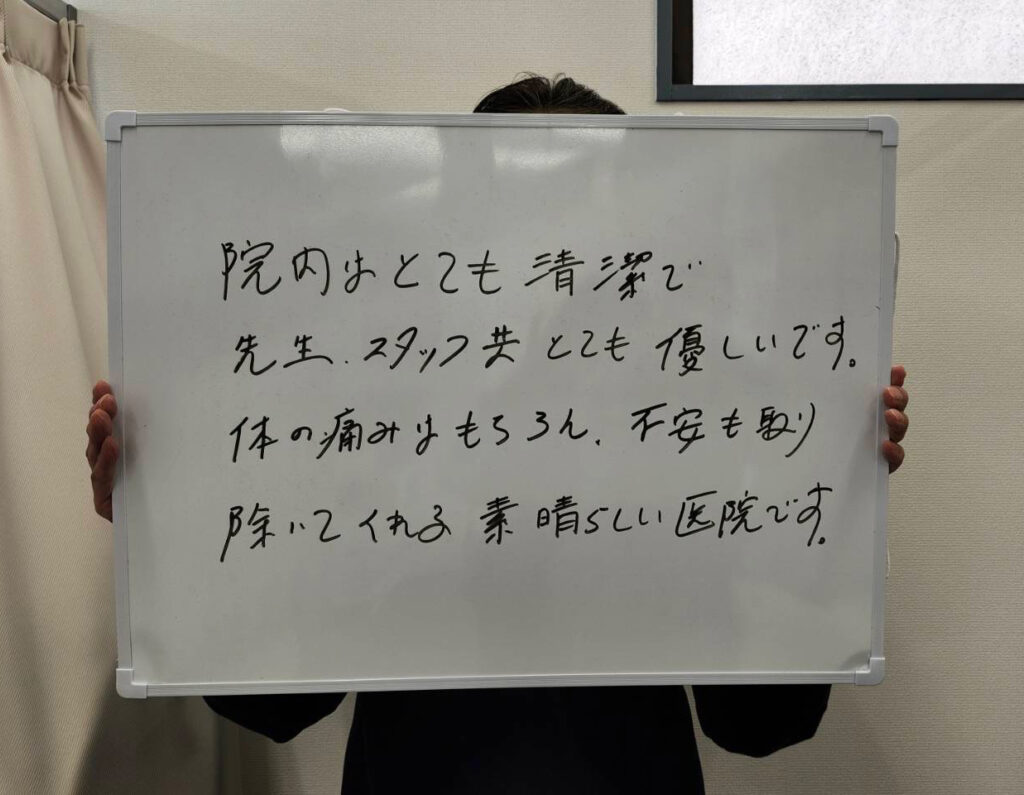 院内はとても清潔で
先生、スタッフ共とても優しいです。
体の痛みはもちろん、不安も取り
除いてくれる素晴らしい医院です。